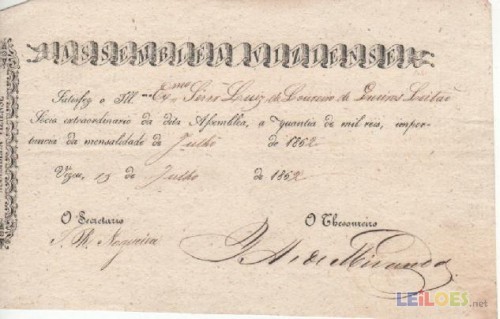 ASSEMBLEA VIZIENSE
Satisfez o Ill.mo Ex.mo Snr Luiz de Loureiro de Queiroz Leitão
Socio extraordinario da dita Assemblea, a quantia de mil reis, impor-
tencia da mensalidade de Julho de 1862
Vizeu, 13 de Julho de 1862
O Secretario
O Thesoureiro
Nogueira
de Miranda
LEILOES.net